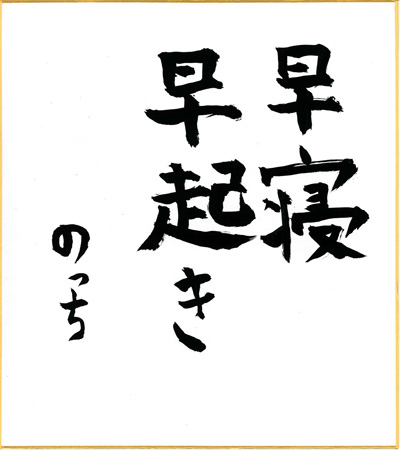 早寝
早起き
のっち